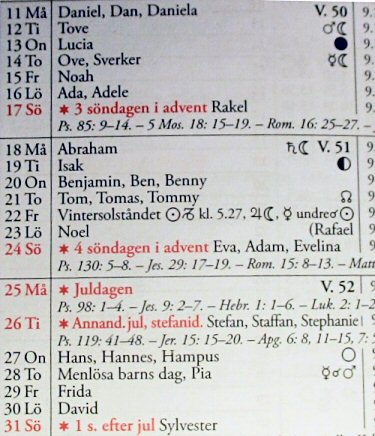 11 Må Daniel, Dan, Daniela V. 50 9.
12 Ti Tove ♂☾ 9.
13 On Lucia ● 9.
14 To Ove, Sverker ☿☾ 9.
15 Fr Noah 9.
16 Lö Ada, Adele 9.
17 Sö ✶ 3 söndagen i advent Rakel 9.
Ps. 85: 9–14. – 5 Mos. 18: 15–19. – Rom. 16: 25–27. –
18 Må Abraham ♄☾ V. 51 9.
19 Ti Isak ◐ 9.
20 On Benjamin, Ben, Benny 9.
21 To Tom, Tomas, Tommy ☊ 9.
22 Fr Vintersolståndet ☉♑ kl. 5.27, ♃☾, ☿ undre☌☉ 9.
23 Lö Noel (Rafael 9.
24 Sö ✶ 4 söndagen i advent Eva, Adam, Evelina 9.
Ps. 130: 5–8. – Jes. 29: 17–19. – Rom. 15: 8–13. – Matt
25 Må ✶ Juldagen V. 52 9.
Ps. 98: 1–4. – Jes. 9: 2–7. – Hebr. 1: 1–6. – Luk. 2: 1–2
26 Ti ✶ Annand. jul, stefanid. Stefan, Staffan, Stephanie 9.
Ps. 119: 41–48. – Jer. 15: 15–20. – Apg. 6: 8, 11–15, 7: 5
27 On Hans, Hannes, Hampus ○ 9.
28 To Menlösa barns dag, Pia ☿☌♂ 9.
29 Fr Frida 9.
30 Lö David 9.
31 Sö ✶ 1 s. efter jul Sylvester 9.